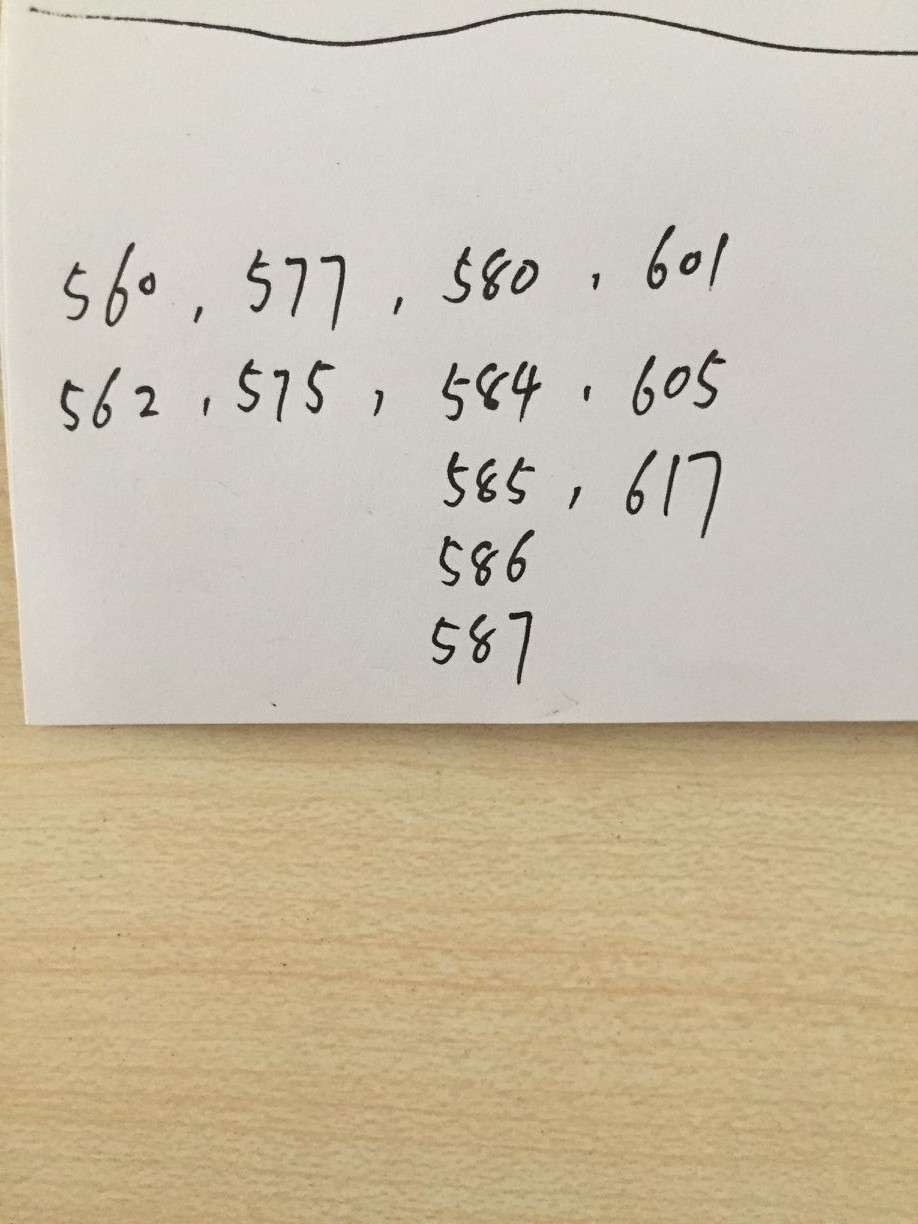 560, 577, 580, 601
562, 575, 584, 605
585, 617
586
587